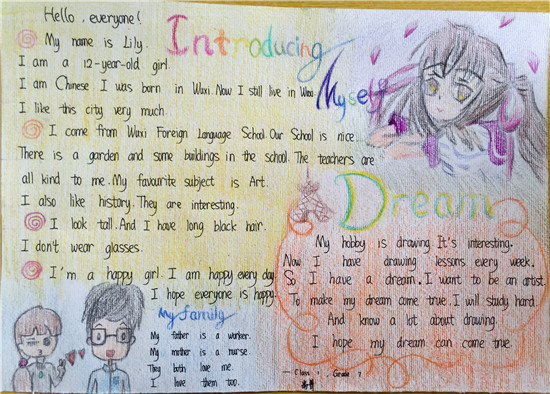 Hello, everyone!
My name is Lily.
I am a 12-year-old girl.
I am Chinese I was born in Wuxi. Now I still live in Wuxi
I like this city very much.
I come from Wuxi Foreign Language School. Our School is nice.
There is a garden and some buildings in the school. The teachers are
all kind to me. My favourite subject is Art.
I also like history. They are interesting.
I look tall. And I have long black hair.
I don't wear glasses.
I'm a happy girl. I am happy every day.
I hope everyone is happy.
Introducing
Myself
Dream
My hobby is drawing. It's interesting.
Now I have drawing lessons every week.
So I have a dream. I want to be an artist.
To make my dream come true. I will study hard.
And know a lot about drawing.
I hope my dream can come true.
My family
My father is a worker.
My mother is a nurse.
They both love me.
I love them too.
— Class 1, Grade 7